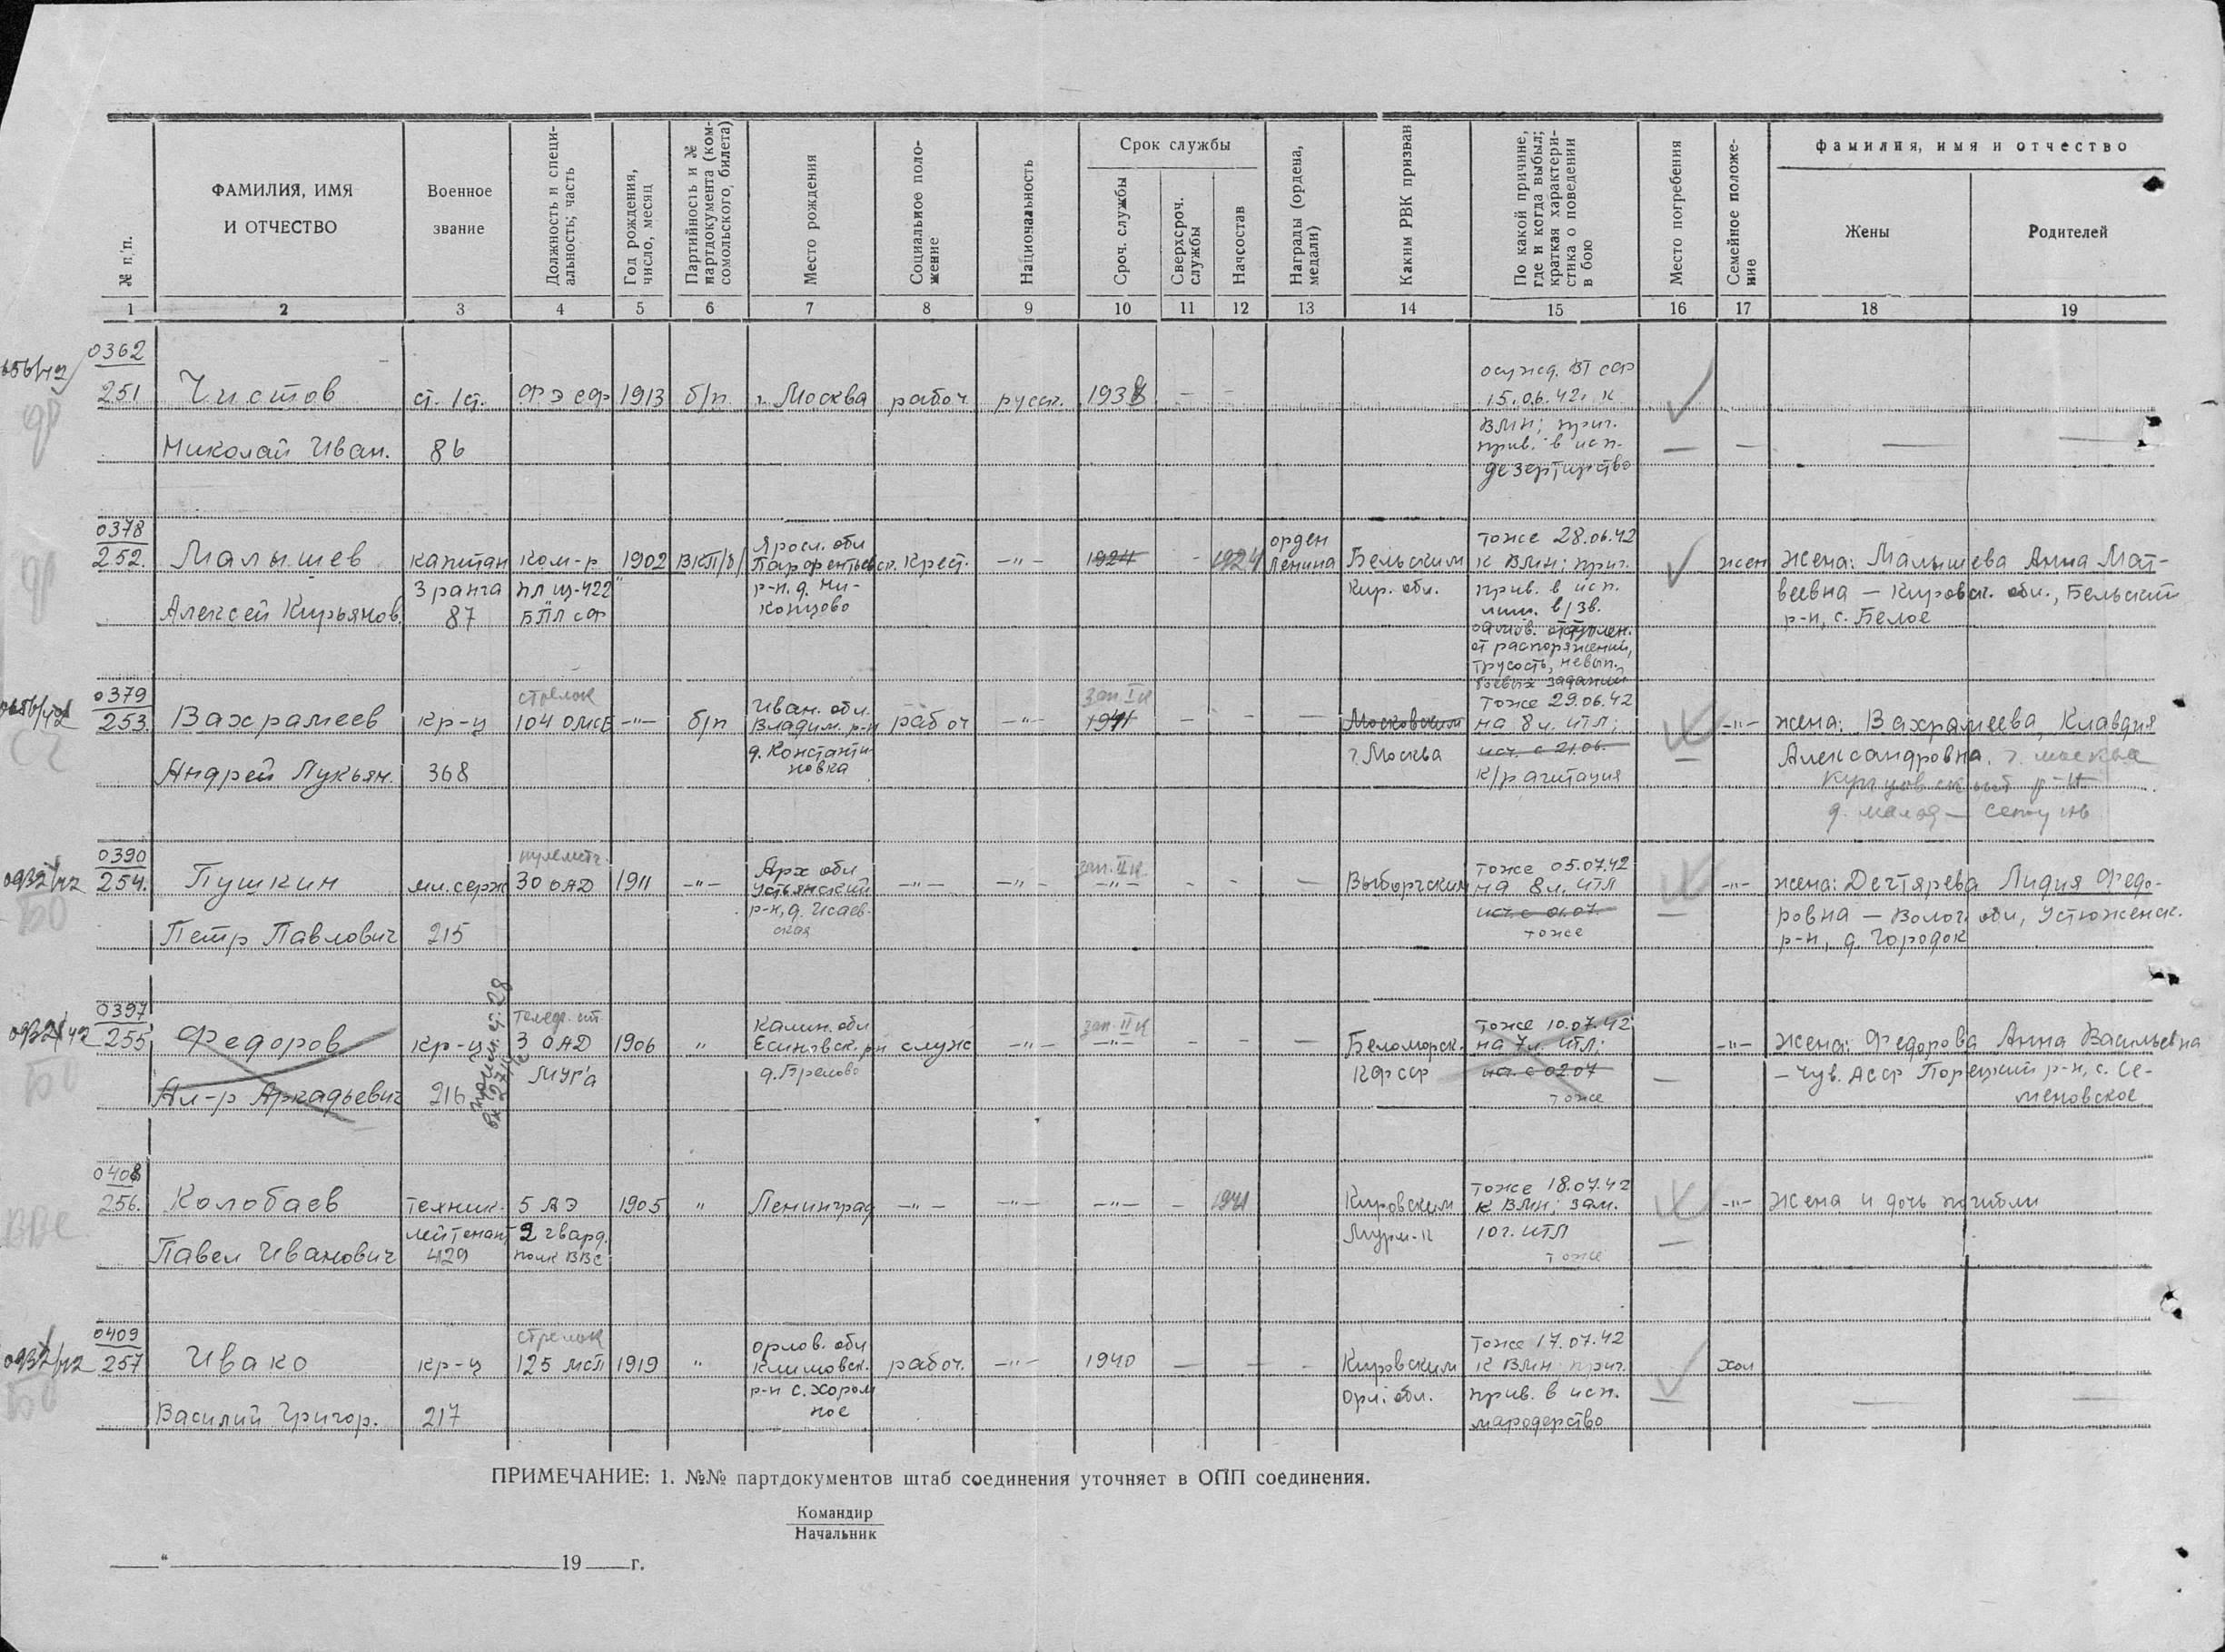 № п/п.
ФАМИЛИЯ, ИМЯ
И ОТЧЕСТВО
Военное
звание
Должность и специ-
альность; часть
Год рождения,
число, месяц
Партийность и №
партдокумента (ком-
сомольского, билета)
Место рождения
Социальное поло-
жение
Национальность
Срок службы
Сроч. службы
Сверхсроч.
службы
Начсостав
Награды (ордена,
медали)
Каким РВК призван
По какой причине,
где и когда выбыл;
краткая характери-
стика о поведении
в бою
Место погребения
Семейное положе-
ние
фамилия, имя и отчество
Жены
Родителей
1 2 3 4 5 6 7 8 9 10 11 12 13 14 15 16 17 18 19
0362
251. Чистов ст. 1 ст. ФЭ СФ 1913 б/п г. Москва рабоч русск. 1938 – –
Николай Иван. 86
осужд. ВТ СФ
15.06.42г к
ВМН; приг.
прив. в исп.
дезертирство
0378
252. Малышев капитан ком-р 1902 ВКП/б/
Алексей Кирьянов.
3 ранга
87
пл щ-422
БПЛ СФ
Яросл. обл
Парфентьевск.
р-н, д. Ни-
концово
Крест. –"– 1924 – 1924
орден
Ленина
Бельским
Кир. обл.
тоже 28.06.42
к ВМН; приг.
прив. в исп.
лиш. в/зв.
от распоряжений,
трусость, невып.
боевых заданий
жен
жена: Малышева Анна Мат-
веевна – Кировск. обл., Бельский
р-н, с. Белое
0379
253. Вахрамеев кр-ц
Андрей Лукьян. 368
стрелок
104 ОМСБ –"– б/п
Иван. обл.
Владим. р-н
д. Константи-
новка
рабоч –"–
зап. I к
1941 – – –
Московским
г. Москва
тоже 29.06.42
на 8 л. ИТЛ;
исч. с 21.06.
к/р агитация
–"–
жена: Вахрамеева, Клавдия
Александровна. г. Москва
р-н
д. малая – сетунь
0932/42
0390
254. Пушкин мл. серж
БО
Петр Павлович 215
пулеметч.
30 ОАД 1911 –"–
Арх обл
Устьянский
р-н, д. Исаев-
ская
–"– –"–
зап. II к.
–"– – – –
Выборгским
тоже 05.07.42
на 8 л. ИТЛ
исч. с 01.07.
тоже
–"–
жена: Дегтярева Лидия Федо-
ровна – Волог. обл, Устюженск.
р-н, д. Городок
0932/42
0397
255 Федоров кр-ц
Ал-р Аркадьевич 216
телеф-ст.
3 ОАД
МУГа
1906 "
Калин. обл
Есиновск. рн
д. Брелово
служ –"–
зап. II к
–"– – – –
Беломорск.
КФССР
тоже 10.07.42
на 7 л. ИТЛ;
исч. с 02.07
тоже
–"–
жена: Федорова Анна Васильевна
– Чув. АССР Порецкий р-н, с. Се-
меновское
0408
256. Колобаев техник-
ВВС
лейтенант
Павел Иванович 429
5 АЭ
2 гвард.
полк ВВС
1905 " Ленинград –"– –"– –"– – 1941
Кировским
Мурм-к
тоже 18.07.42
к ВМН; зам.
10 г. ИТЛ
тоже
–"– жена и дочь погибли
0932/42
0409
257 Ивако кр-ц
БО
Василий Григор. 217
стрелок
125 МСП 1919 "
Орлов. обл
Климовск.
р-н с. Хором
ное
рабоч. –"– 1940 – – –
Кировским
Орл. обл.
тоже 17.07.42
к ВМН; приг.
прив. в исп.
мародерство
хол
ПРИМЕЧАНИЕ: 1. №№ партдокументов штаб соединения уточняет в ОПП соединения.
Командир
Начальник
" 19 г.